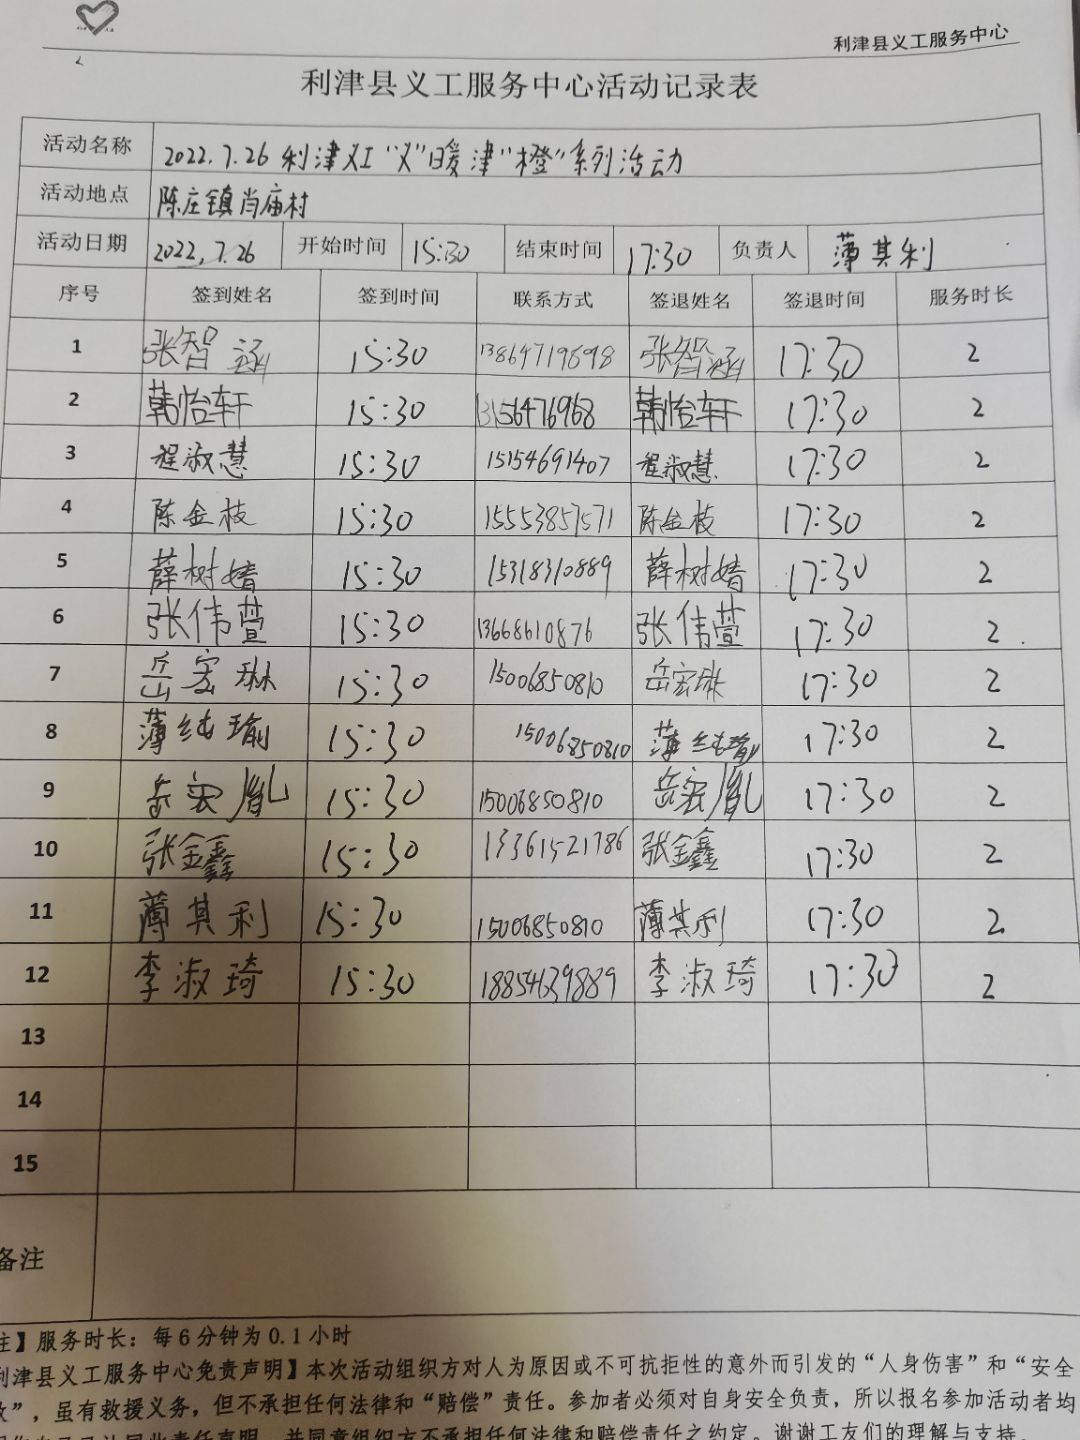 利津县义工服务中心
利津县义工服务中心活动记录表
活动名称 2022.7.26 利津义工“义”暖津“橙”系列活动
活动地点 陈庄镇肖庙村
活动日期 2022.7.26 开始时间 15:30 结束时间 17:30 负责人 薄其利
序号 签到姓名 签到时间 联系方式 签退姓名 签退时间 服务时长
1 张智涵 15:30 13864719698 张智涵 17:30 2
2 韩怡轩 15:30 13156476968 韩怡轩 17:30 2
3 程淑慧 15:30 15154691407 程淑慧 17:30 2
4 陈金枝 15:30 15553857571 陈金枝 17:30 2
5 薛树婧 15:30 15318310889 薛树婧 17:30 2
6 张伟萱 15:30 13668610876 张伟萱 17:30 2
7 岳宏琳 15:30 15006850810 岳宏琳 17:30 2
8 薄纯瑜 15:30 15006850810 薄纯瑜 17:30 2
9 岳宏胤 15:30 15006850810 岳宏胤 17:30 2
10 张金鑫 15:30 13361521786 张金鑫 17:30 2
11 薄其利 15:30 15006850810 薄其利 17:30 2
12 李淑琦 15:30 李淑琦 17:30 2
13
14
15
备注
注】服务时长：每6分钟为0.1小时
利津县义工服务中心免责声明】本次活动组织方对人为原因或不可抗拒性的意外而引发的“人身伤害”和“安全
故”，虽有救援义务，但不承担任何法律和“赔偿”责任。参加者必须对自身安全负责，所以报名参加活动者均
责任声明，并同意组织方不承担任何法律和赔偿责任之约定。谢谢工友们的理解与支持。